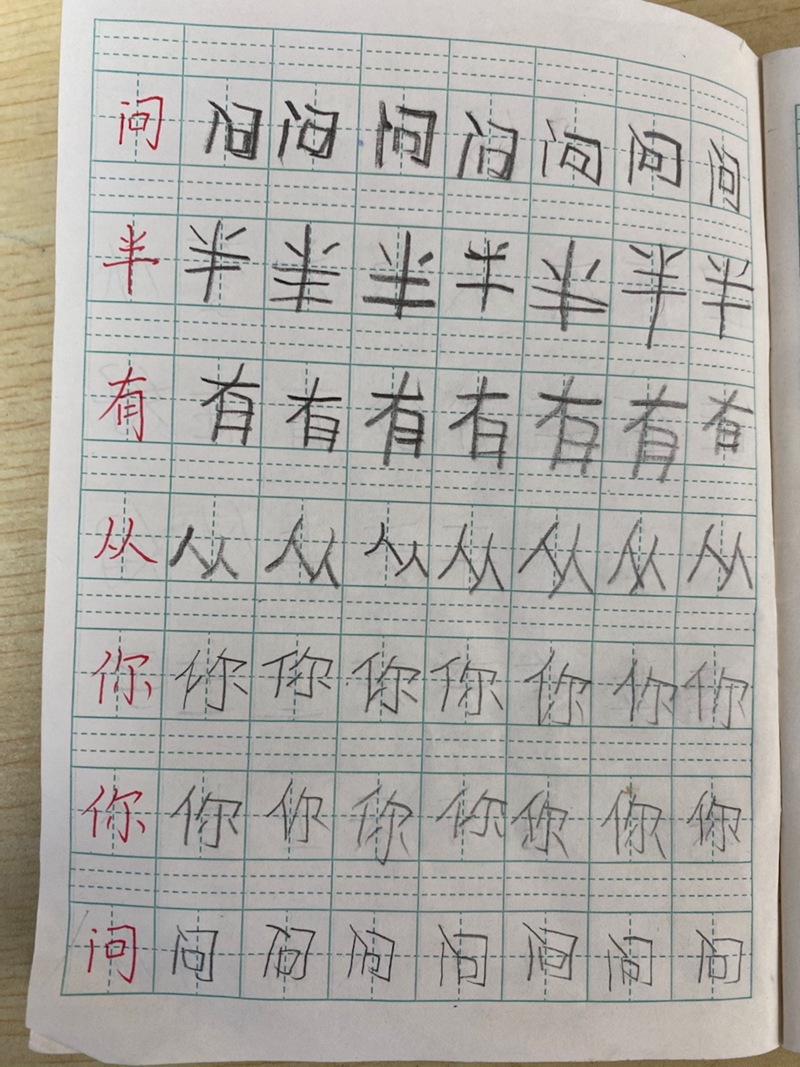 问 问 问 问 问 问 问 问
半 半 半 半 半 半 半 半
有 有 有 有 有 有 有 有
从 从 从 从 从 从 从 从
你 你 你 你 你 你 你 你
你 你 你 你 你 你 你 你
问 问 问 问 问 问 问 问